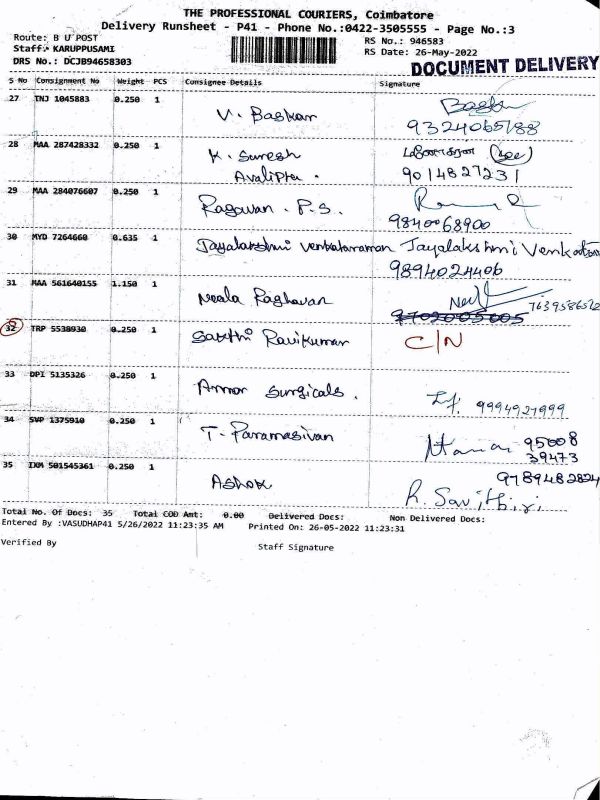 THE PROFESSIONAL COURIERS, Coimbatore
Delivery Runsheet - P41 - Phone No.:0422-3505555 - Page No.:3
Route: B U POST
RS No.: 946583
Staff: KARUPPUSAMI
RS Date: 26-May-2022
DRS No.: DCJB94658303
DOCUMENT DELIVERY
S No Consignment No Weight PCS Consignee Details Signature
27 TNJ 1045883 0.250 1 V. Baskar
9324065188
28 MAA 287428332 0.250 1 K. Suresh
Avalipta. 9014827231
29 MAA 284076607 0.250 1 Ragavan. P.S.
9840068900
30 MYD 7264660 0.635 1 Jayalakshmi Venkataraman Jayalakshmi Venkatram
9894024406
31 MAA 561640155 1.150 1 Neela Raghavan 7639586512
9709005005
32 TRP 5538930 0.250 1 Sakthi Ravikumar C/N
33 DPI 5135326 0.250 1 Armor Surgicals. 9994921999
34 SVP 1375910 0.250 1 T. Paramasivan 95008
39473
35 IXM 501545361 0.250 1 Ashok 9789482824
R. Savithiri
Total No. Of Docs: 35 Total COD Amt: 0.00 Delivered Docs: Non Delivered Docs:
Entered By :VASUDHAP41 5/26/2022 11:23:35 AM Printed On: 26-05-2022 11:23:31
Verified By Staff Signature